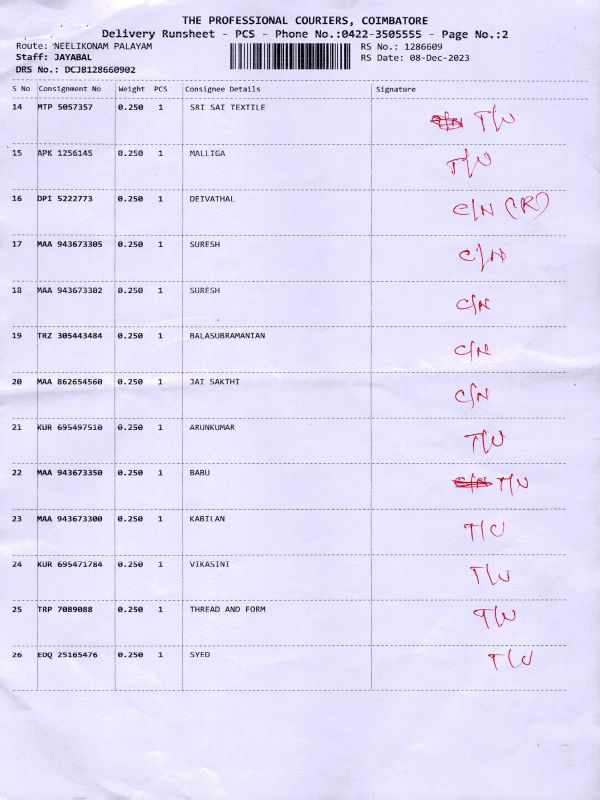 THE PROFESSIONAL COURIERS, COIMBATORE
Delivery Runsheet - PCS - Phone No.:0422-3505555 - Page No.:2
Route: NEELIKONAM PALAYAM RS No.: 1286609
Staff: JAYABAL RS Date: 08-Dec-2023
DRS No.: DCJB128660902
S No Consignment No Weight PCS Consignee Details Signature
14 MTP 5057357 0.250 1 SRI SAI TEXTILE T/U
15 APK 1256145 0.250 1 MALLIGA T/U
16 DPI 5222773 0.250 1 DEIVATHAL C/N (R)
17 MAA 943673305 0.250 1 SURESH C/N
18 MAA 943673302 0.250 1 SURESH C/N
19 TRZ 305443484 0.250 1 BALASUBRAMANIAN C/N
20 MAA 862654560 0.250 1 JAI SAKTHI C/N
21 KUR 695497510 0.250 1 ARUNKUMAR T/U
22 MAA 943673350 0.250 1 BABU C/N T/U
23 MAA 943673300 0.250 1 KABILAN T/U
24 KUR 695471784 0.250 1 VIKASINI T/U
25 TRP 7089088 0.250 1 THREAD AND FORM T/U
26 EDQ 25165476 0.250 1 SYED T/U